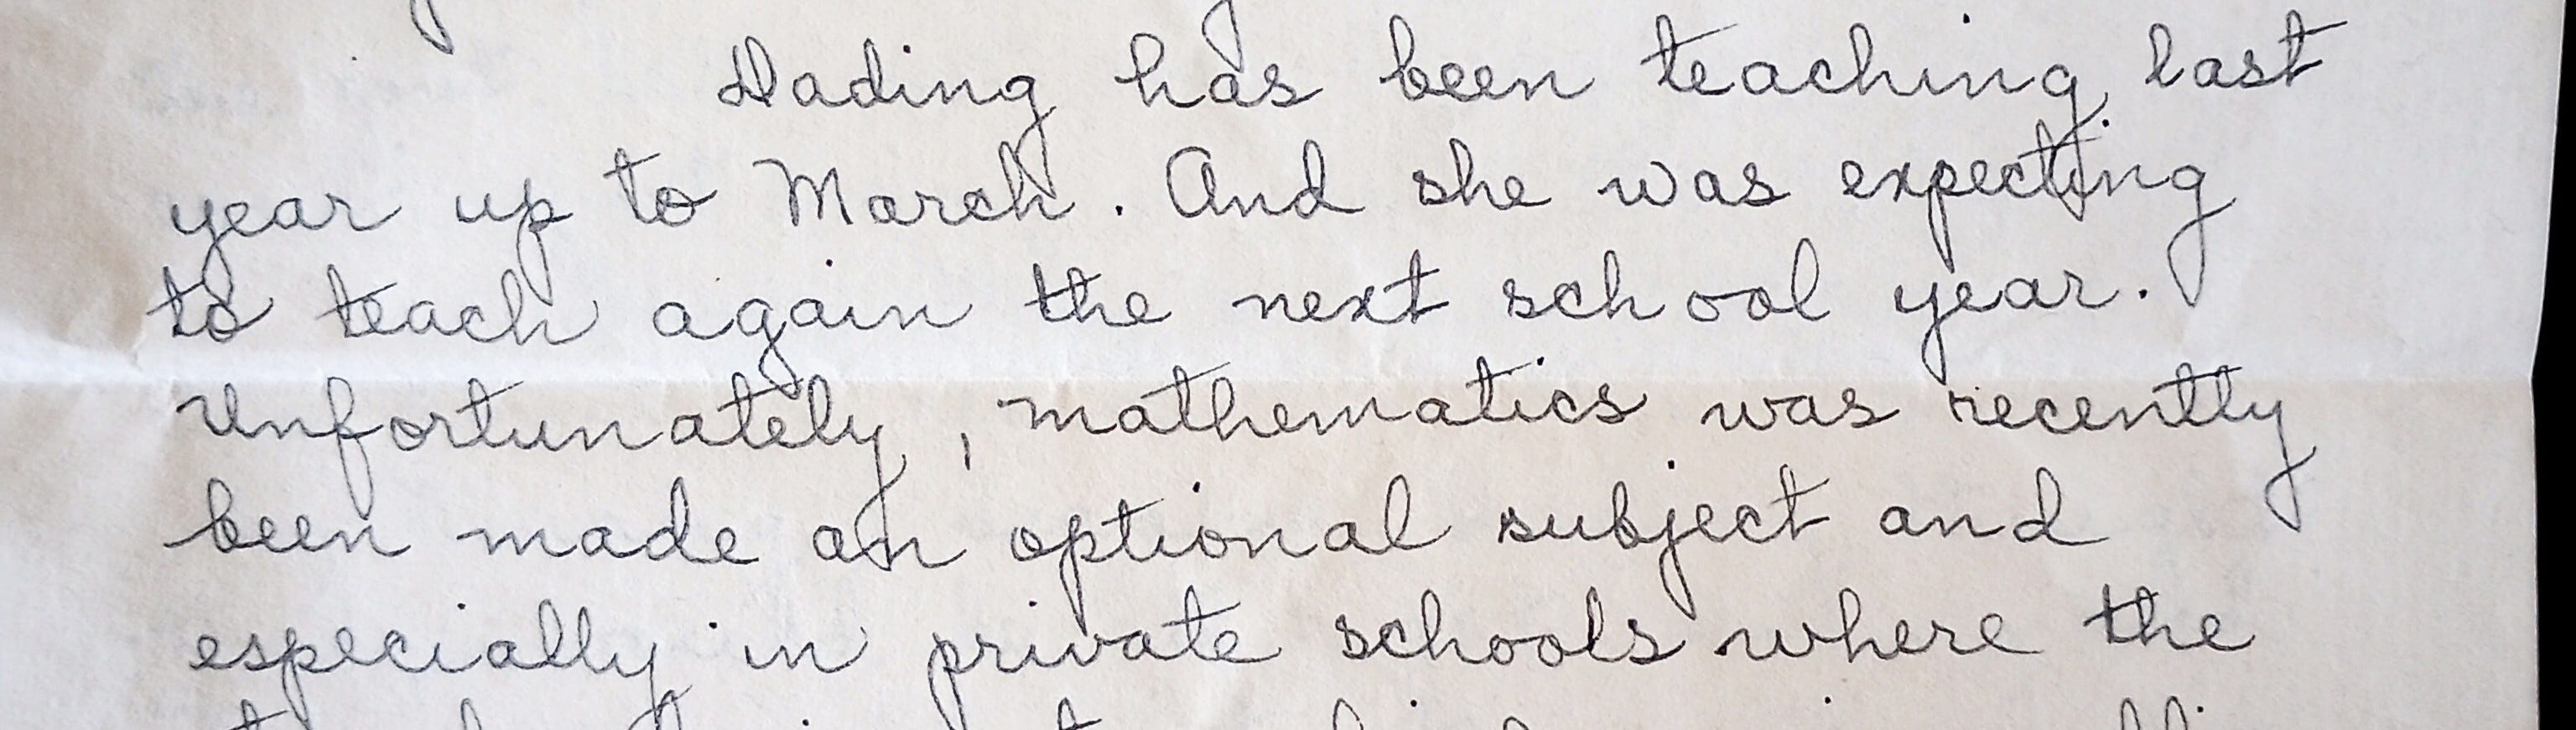 Dading has been teaching last
year up to March. And she was expecting
to teach again the next school year.
Unfortunately, mathematics was recently
been made an optional subject and
especially in private schools where the